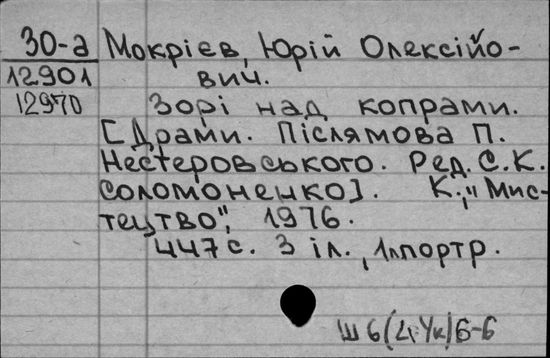 30-а Мокрієв, Юрій Олексійо-
12901 вич.
12970 Зорі над копрами.
[Драми. Післямова П.
Нестеровського. Ред. С.К.
Соломоненко]. К., "Мис-
тецтво", 1976.
447с. 3 іл., 1л портр.
Ш6(2Ук)6-6